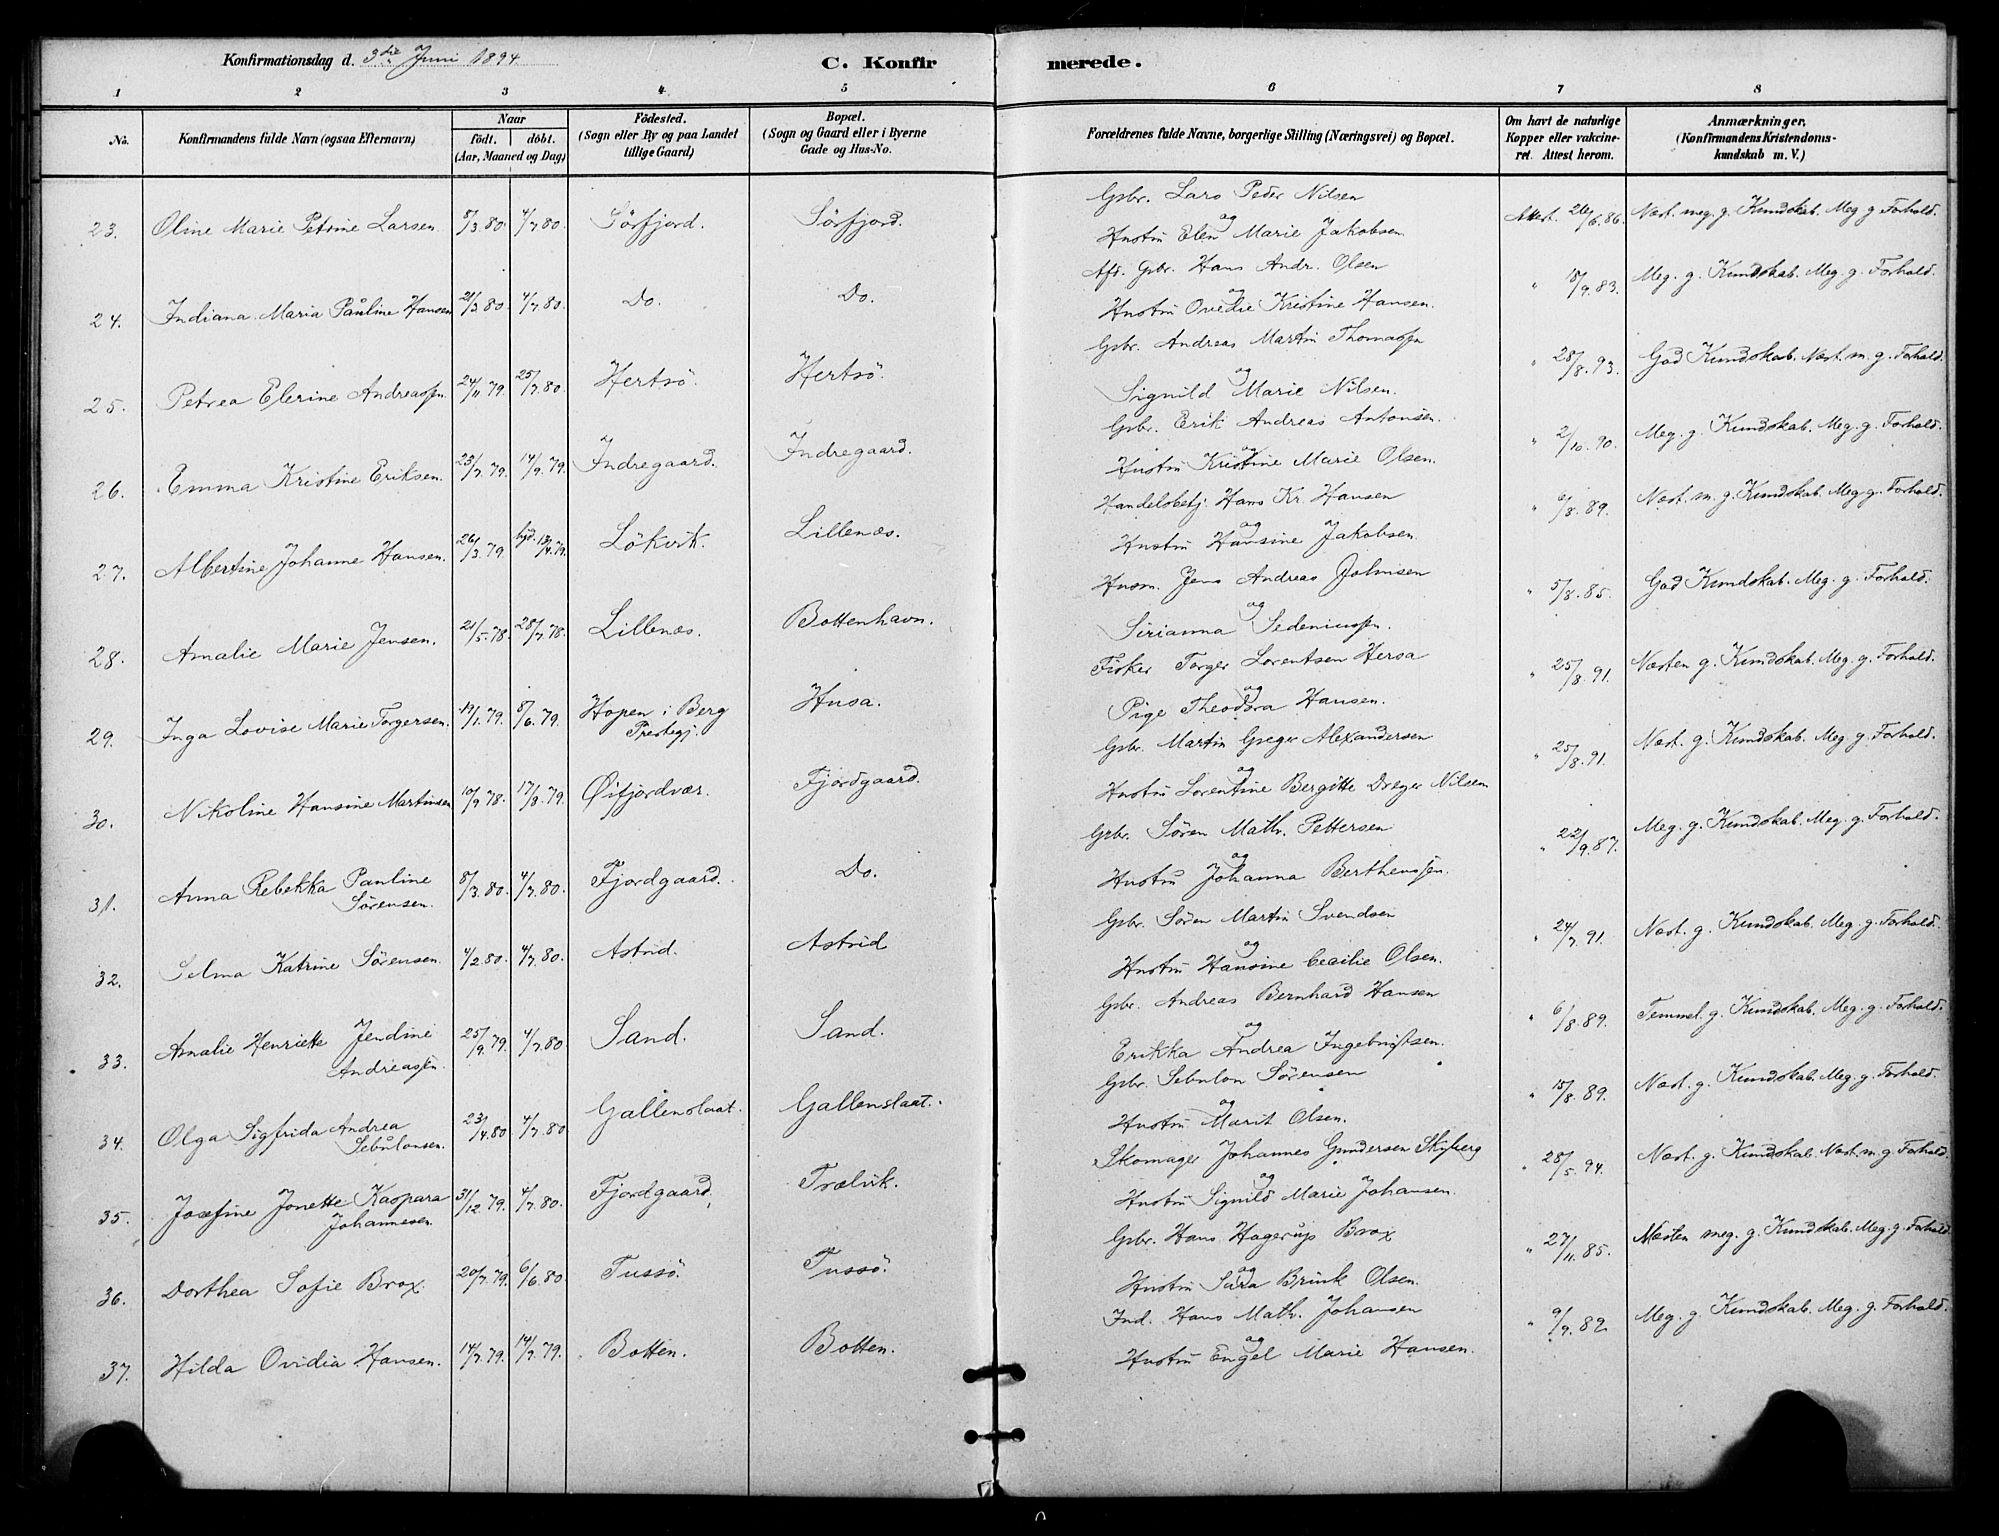 Konfirmationsdag d. 3die Juni 1894
C. Konfirmerede.
1 2 3 4 5 6 7 8
No.
Konfirmandens fulde Navn (ogsaa Efternavn)
Naar
födt. döbt.
(Aar, Maaned og Dag)
Födested.
(Sogn eller By og paa Landet
tillige Gaard)
Bopæl.
(Sogn og Gaard eller i Byerne
Gade og Hus-No.
Forældrenes fulde Navne, borgerlige Stilling (Næringsvei) og Bopæl.
Om havt de naturlige
Kopper eller vakcine-
ret. Attest herom.
Anmærkninger,
(Konfirmandens Kristendoms-
kundskab m. V.)
23. Oline Marie Petrine Larsen 8/3.80. 4/7.80. Sörfjord. Sörfjord. Gbr. Lars Peder Nilsen
og
Hustru Elen Marie Jakobsen. Attest. 26/6.86. Næst. meg. g. Kundskab. Meg g Forhold.
24. Indiana Maria Pauline Hansen 21/3.80. 4/7.80. Do. Do. Afd. Gbr. Hans Andr. Olsen
og
Hustru Ovedie Kristine Hansen. " 18/9.83. Meg. g. Kundskab. Meg. g. Forhold.
25. Petrea Elerine Andreassen. 24/11.79. 25/7.80. Hertsö. Hertsö. Gbr. Andreas Martin Thomassen
og
Signild Marie Nilsen. " 28/8.93. God Kundskab. Næst. m. g. Forhold.
26. Emma Kristine Eriksen. 23/7.79. 14/9.79. Indregaard. Indregaard. Gbr. Erik Andreas Antonsen.
og
Hustru Kristine Marie Olsen. " 2/10.90. Meg. g. Kundskab. Meg. g. Forhold.
27. Albertine Johanne Hansen. 26/3.79. hjd. 13/4.79. Lökvik. Lillenæs. Handelsbetj. Hans Kr. Hansen
og
Hustru Hansine Jakobsen. " 6/8.89. Næst. m. g. Kundskab. Meg g. Forhold.
28. Amalie Marie Jensen. 21/5.78. 28/7.78. Lillenæs. Bottenhavn. Husm. Jens Andreas Johnsen
og
Sirianna Sedeniussen. " 5/8.85. God Kundskab. Meg. g. Forhold.
29. Inga Lovise Marie Torgersen. 19/1.79. 8/6.79. Hopen i Berg
Prestegj. Husa. Fisker Torger Lorentsen Hersa
og
Pige Theodora Hansen. " 25/8.91. Næsten g. Kundskab. Meg. g. Forhold.
30. Nikoline Hansine Martinsen 10/9.78. 17/8.79. Øifjordvær. Fjordgaard. Gbr. Martin Greger Alexandersen
og
Hustru Lorentine Bergitte Dreyer Nilsen " 25/8.91. Næst. g. Kundskab. Meg g. Forhold.
31. Anna Rebekka Pauline
Sörensen. 8/3.80. 4/7.80. Fjordgaard. Do. Gbr. Sören Math. Pettersen
og
Hustru Johanna Berthenssen. " 22/9.87. Meg. g. Kundskab. Meg. g Forhold.
32. Selma Katrine Sörensen. 4/2.80. 4/7.80. Astrid. Astrid Gbr. Sören Martin Svendsen
og
Hustru Hansine Cecilie Olsen. " 24/7.91. Næst. g. Kundskab. Meg g. Forhold.
33. Amalie Henriette Jendine
Andreassen. 25/9.79. 4/7.80. Sand. Sand. Gbr. Andreas Bernhard Hansen
og
Erikka Andrea Ingebrigtsen. " 6/8.89. Temmel. g. Kundskab. Meg. g. Forhold.
34. Olga Sigfrida Andrea
Sebulonsen. 23/4.80 4/7.80 Gallenslaat. Gallenslaat. Gbr. Sebulon Sörensen
og
Hustru Marit Olsen. " 15/8.89. Næst. g. Kundskab. Meg. g. Forhold.
35. Josefine Jonette Kaspara
Johannesen. 31/12.79. 4/7.80. Fjordgaard. Trælvik. Skomager Johannes Gundersen Skyberg
og
Hustru Signild Marie Johansen. " 28/5.94. Næst. g. Kundskab. Næst. m. g. Forhold.
36. Dorthea Sofie Brox. 20/7.79. 6/6.80 Tussö. Tussö. Gbr. Hans Hagerup Brox
og
Hustru Sara Brink Olsen. " 27/11.85. Næsten meg. g. Kundskab. Meg. g. Forhold
37. Hilda Ovidia Hansen. 14/7.79. 14/9.79. Botten. Botten. Ind. Hans Math. Johansen
og
Hustru Engel Marie Hansen. " 9/9.82. Meg. g. Kundskab. Meg. g. Forhold.